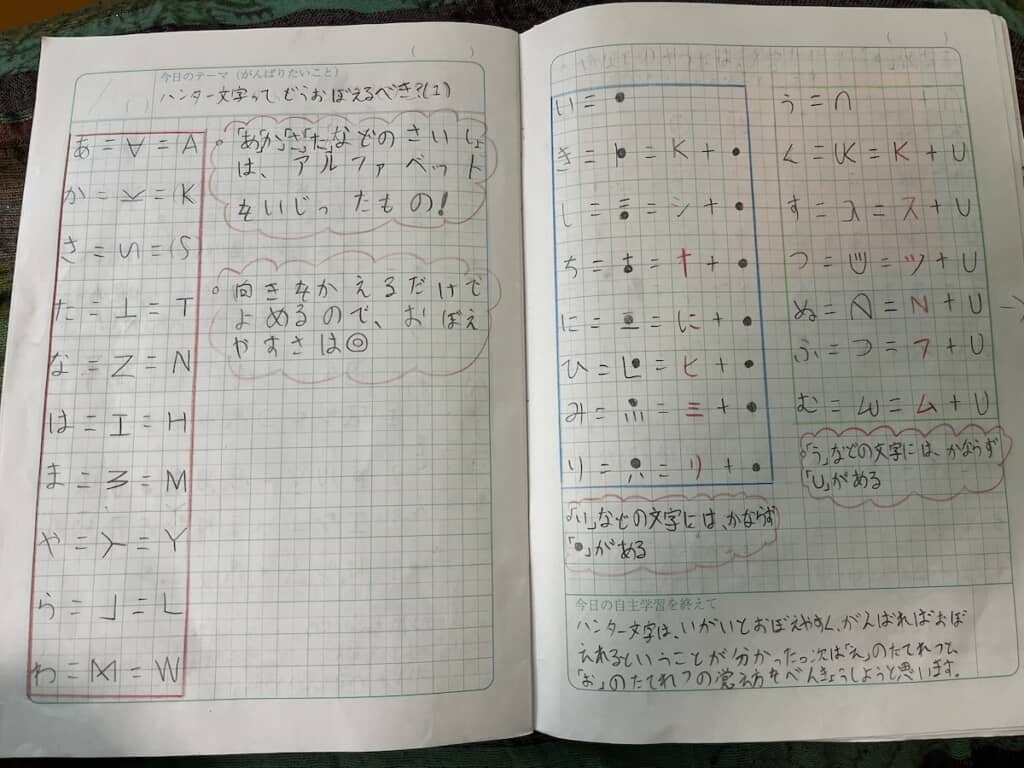 今日のテーマ（がんばりたいこと）
ハンター文字って、どうおぼえるべき?(1)
あ = ∀ = A
か = = K
さ = = S
た = ⊥ = T
な = Z = N
は = 工 = H
ま = = M
や = = Y
ら = 」 = L
わ = = W
「あ」「か」「さ」「た」などのさいしょ
は、アルファベット
をいじったもの!
向きをかえるだけで
よめるので、おぼえ
やすさは◎
い = ●
き = = K + ●
し = = シ + ●
ち = = + ●
に = = に + ●
ひ = = ヒ + ●
み = = 三 + ●
り = = リ + ●
「い」などの文字には、かならず
「●」がある
う = ∩
く = = K + U
す = = ス + U
つ = = ツ + U
ぬ = = N + U
ふ = つ = フ + U
む = = ム + U
「う」などの文字には、かならず
「U」がある
今日の自主学習を終えて
ハンター文字は、いがいとおぼえやすく、がんばればおぼ
えれるということが分かった。次は「え」のたてれつと
「お」のたてれつの覚え方をべんきょうしようと思います。